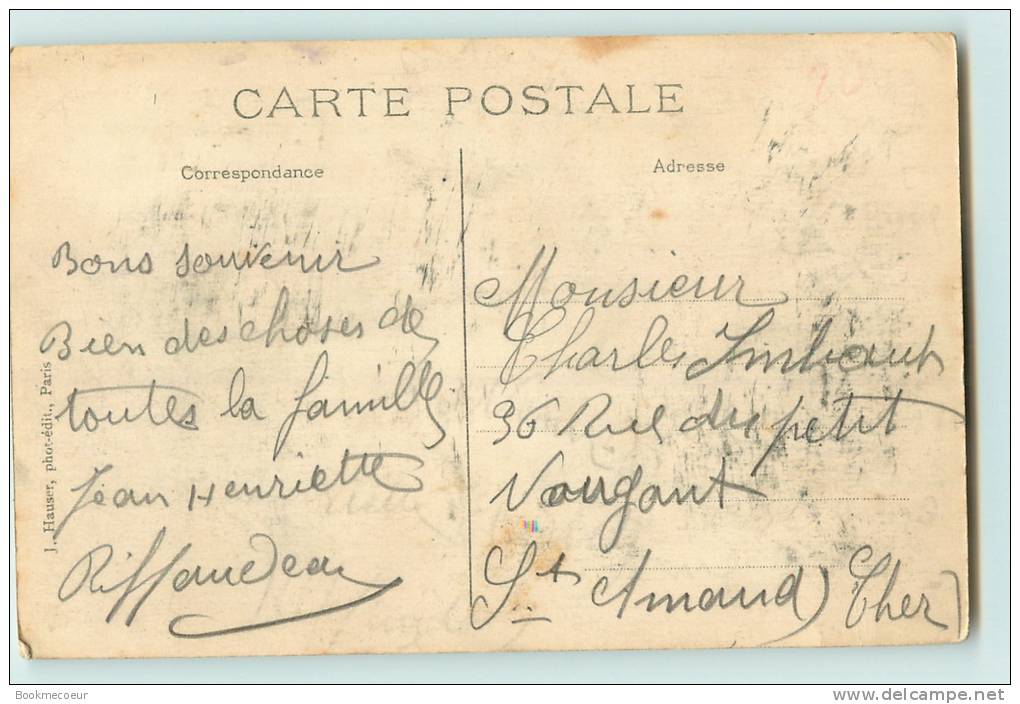 CARTE POSTALE
Correspondance
Bons souvenir
Bien des choses de
toutes la famille
Jean Henriette
Riffaudeau
J. Hauser, phot-édit., Paris
Adresse
Monsieur
Charles Imbault
36 Rue du petit
Vougant
St Amand) Cher)
90
Bookmecoeur
delcampe.net